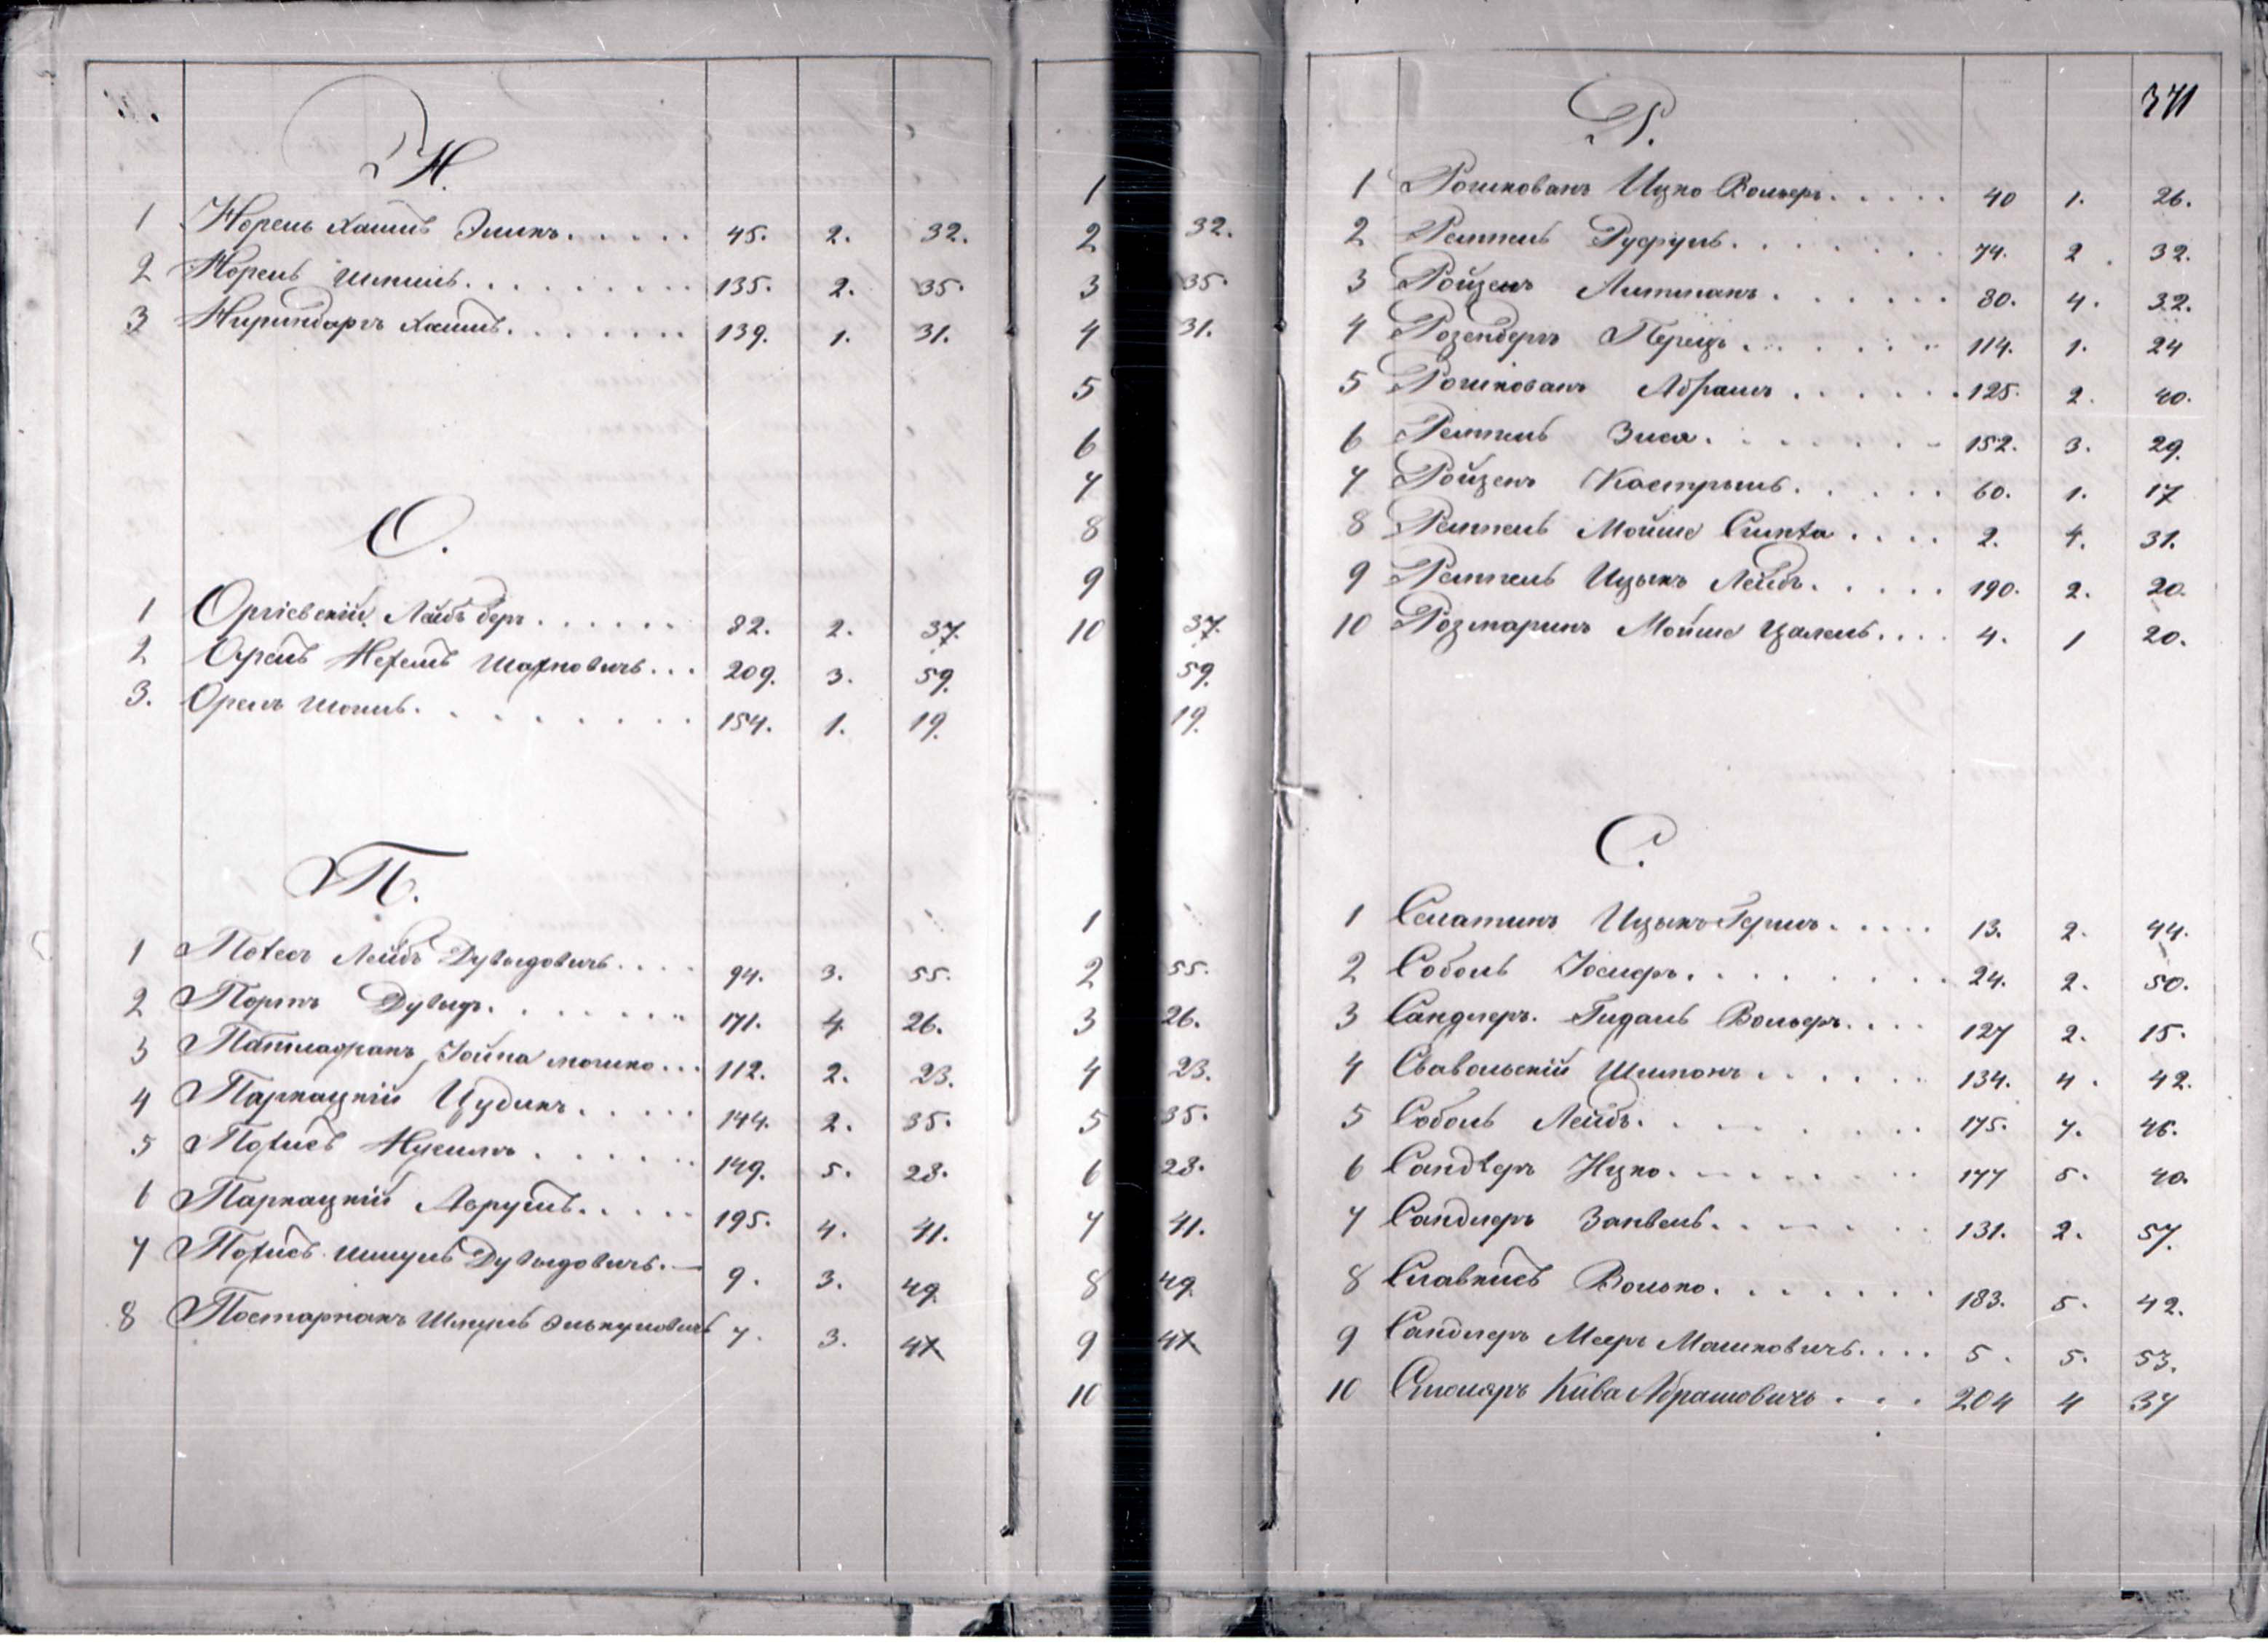 Н.
1 Норель Хаимъ Эликъ..... 45. 2. 32.
2 Норель Шмиль......... 135. 2. 35.
3 Нириндоргъ Хаимъ....... 139. 1. 31.
О.
1 Оргіевскій Лейбъ беръ...... 82. 2. 37.
2 Орель Нехемъ Шахновичъ... 209. 3. 59.
3. Орелъ Шопиль........ 154. 1. 19.
П.
1 Лейбъ Дувыдовичъ.... 94. 3. 55.
2 Портъ Дувыдъ....... 171. 4. 26.
3 Іойна мошко... 112. 2. 23.
4 Паркацкій Цудикъ..... 144. 2. 35.
5 Нусимъ...... 149. 5. 28.
6 Паркацкій Аврумъ..... 195. 4. 41.
7 Шмуль Дувыдовичъ.. 9. 3. 49.
8 Шмуль Элькуновичъ 7. 3. 47
1
2 32.
3 35.
4 31.
5
6
7
8
9
10 37.
59.
19.
1
2 55.
3 26.
4 23.
5 35.
6 28.
7 41.
8 49.
9 47
10
371
Р.
1 Рошкованъ Ицко Вольфъ..... 40 1. 26.
2 Рейтель Руфуль....... 74. 2. 32.
3 Ройзенъ Литманъ...... 80. 4. 32.
4 Розенбергъ Перецъ...... 114. 1. 24
5 Рошкованъ Абрамъ...... 125. 2. 40.
6 Рейтель Зиса....... 152. 3. 29.
7 Ройзенъ Кастрыль..... 60. 1. 17
8 Рейтель Мойше Симха.... 2. 4. 31.
9 Рейтель Ицыкъ Лейбъ..... 190. 2. 20.
10 Розмаринъ Мойше Цалель.... 4. 1 20.
С.
1 Слатинъ Ицыкъ Гершъ..... 13. 2. 44.
2 Соболь Іосифъ........ 24. 2. 50.
3 Сандлеръ. Гидаль Вольфъ.... 127 2. 15.
4 Свавольскій Шлиомъ...... 134. 4. 42.
5 Соболь Лейбъ........ 175. 7. 46.
6 Сандлеръ Ицко....... 177 5. 40.
7 Сандлеръ Занвель...... 131. 2. 57.
8 Волько....... 183. 5. 42.
9 Сандлеръ Мееръ Машковичъ.... 5. 5. 53.
10 Столяръ Кива Абрамовичъ... 204 4 37